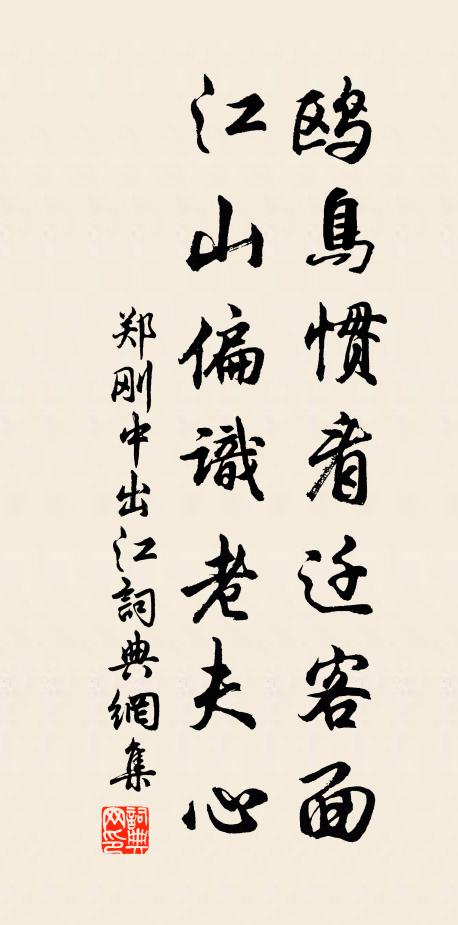 鸥鳥慣看迁客面
江山偏識老夫心
郑刚中出江詞典網集
詞典网印